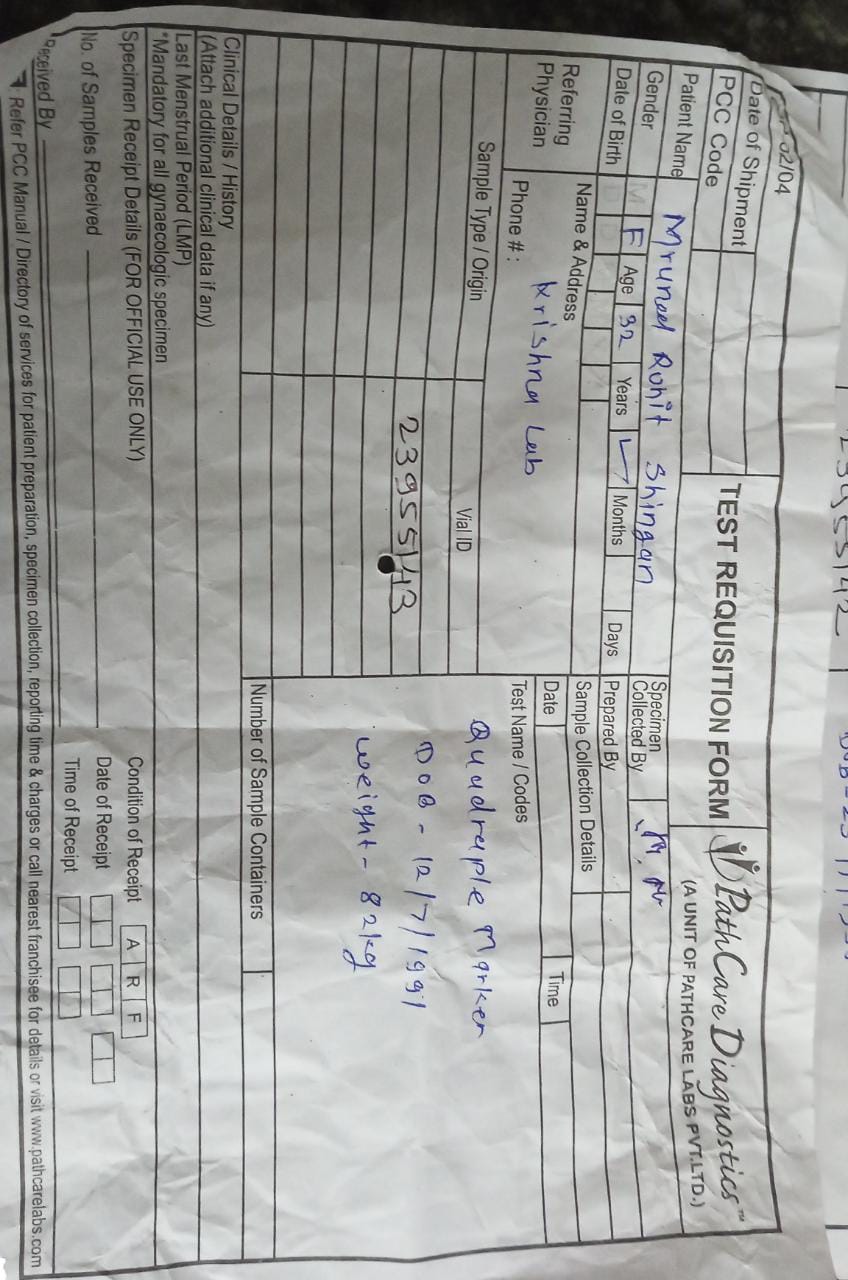 02/04
Date of Shipment
PCC Code
TEST REQUISITION FORM
PathCare Diagnostics™
(A UNIT OF PATHCARE LABS PVT.LTD.)
Patient Name Mrunal Rohit Shingan
Specimen Collected By
Gender M F Age 32 Years Months Days
Prepared By
Date of Birth D D
Sample Collection Details
Referring Physician
Name & Address
Krishna Lab
Phone # :
Date Time
Sample Type / Origin
Vial ID
Test Name / Codes
23955143
Quadraple Marker
DOB - 12/7/1991
Weight - 82kg
Number of Sample Containers
Clinical Details / History
(Attach additional clinical data if any)
Last Menstrual Period (LMP)
*Mandatory for all gynaecologic specimen
Specimen Receipt Details (FOR OFFICIAL USE ONLY)
Condition of Receipt A R F
No. of Samples Received
Date of Receipt
Received By
Time of Receipt
Refer PCC Manual / Directory of services for patient preparation, specimen collection, reporting time & charges or call nearest franchisee for details or visit www.pathcarelabs.com